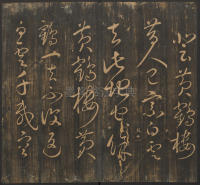 登黃鶴樓
昔人已乘白雲
去此地空餘
黃鶴樓黃
鶴一去不復返
白雲千載空